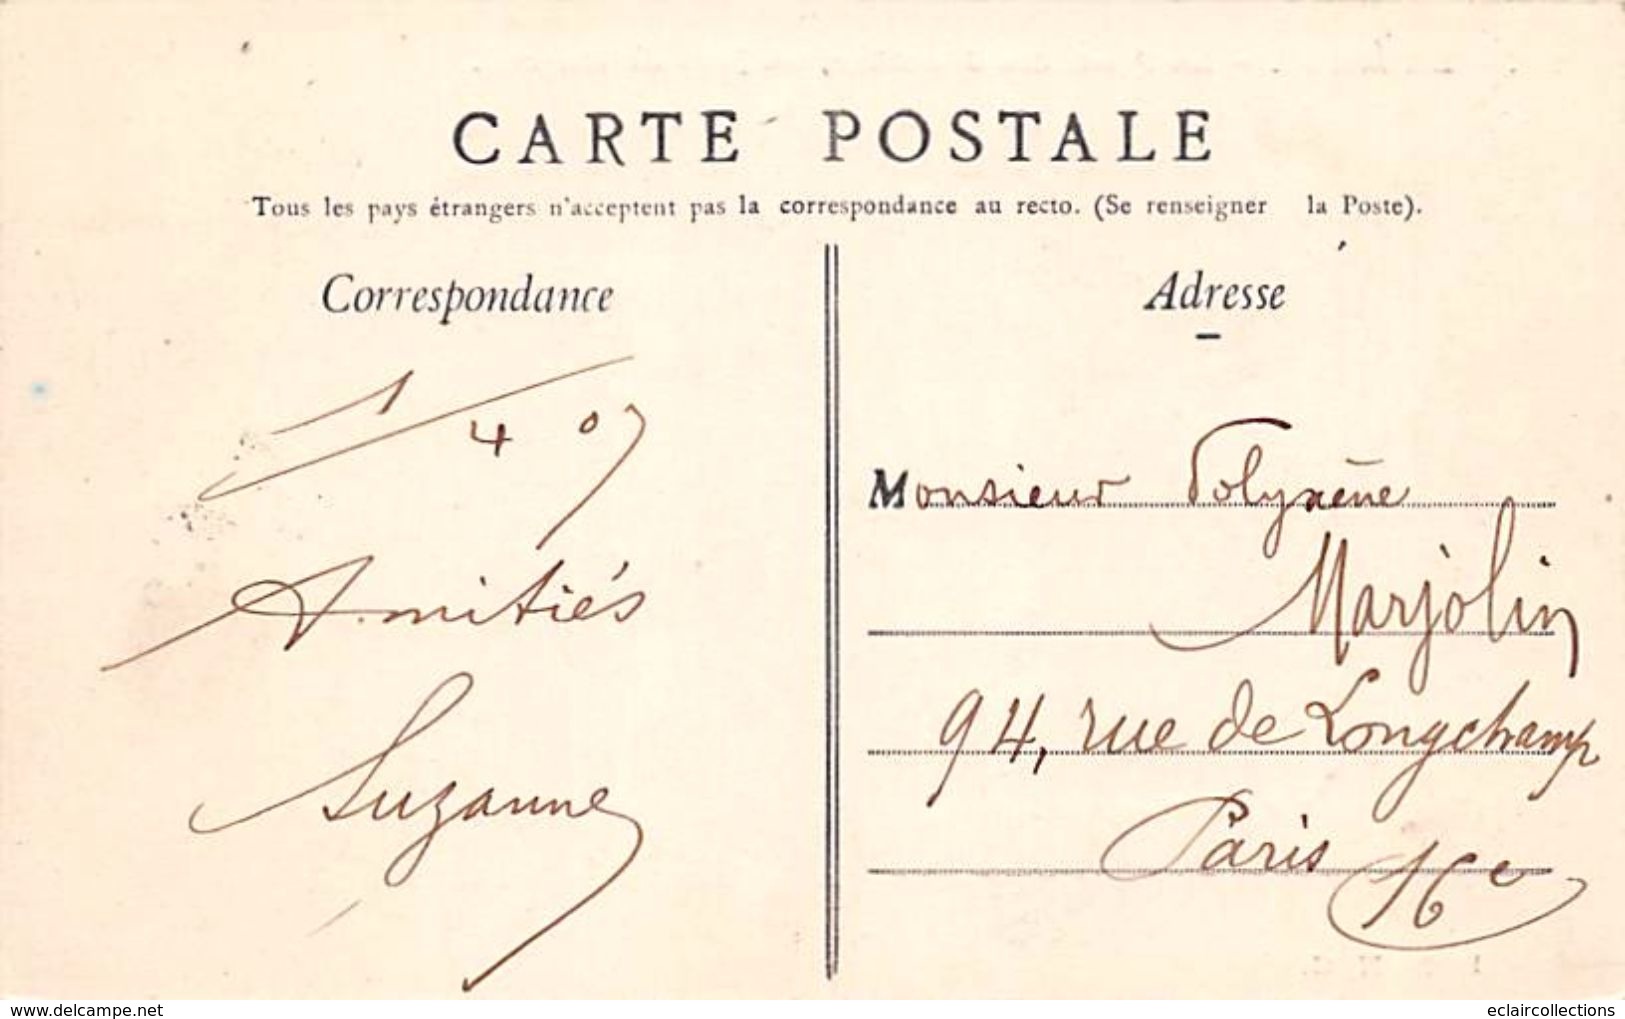 CARTE POSTALE
Tous les pays étrangers n'acceptent pas la correspondance au recto. (Se renseigner la Poste).
Correspondance
1/4 07
Amitiés
Suzanne
Adresse
Monsieur Polyxène
Marjolin
94, rue de Longchamp
Paris 16e
www.delcampe.net
eclaircollections